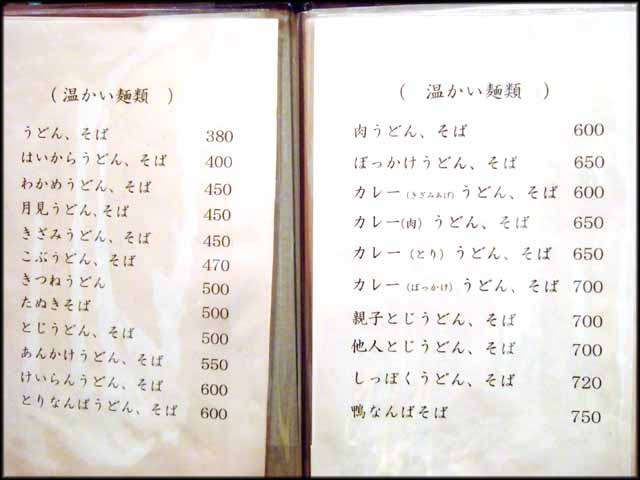 (温かい麺類 )
うどん、そば 380
はいからうどん、そば 400
わかめうどん、そば 450
月見うどん、そば 450
きざみうどん、そば 450
こぶうどん、そば 470
きつねうどん 500
たぬきそば 500
とじうどん、そば 500
あんかけうどん、そば 550
けいらんうどん、そば 600
とりなんばうどん、そば 600
( 温かい麺類 )
肉うどん、そば 600
ぼっかけうどん、そば 650
カレー(きざみあげ)うどん、そば 600
カレー(肉) うどん、そば 650
カレー(とり) うどん、そば 650
カレー(ぼっかけ) うどん、そば 700
親子とじうどん、そば 700
他人とじうどん、そば 700
しっぽくうどん、そば 720
鴨なんばそば 750